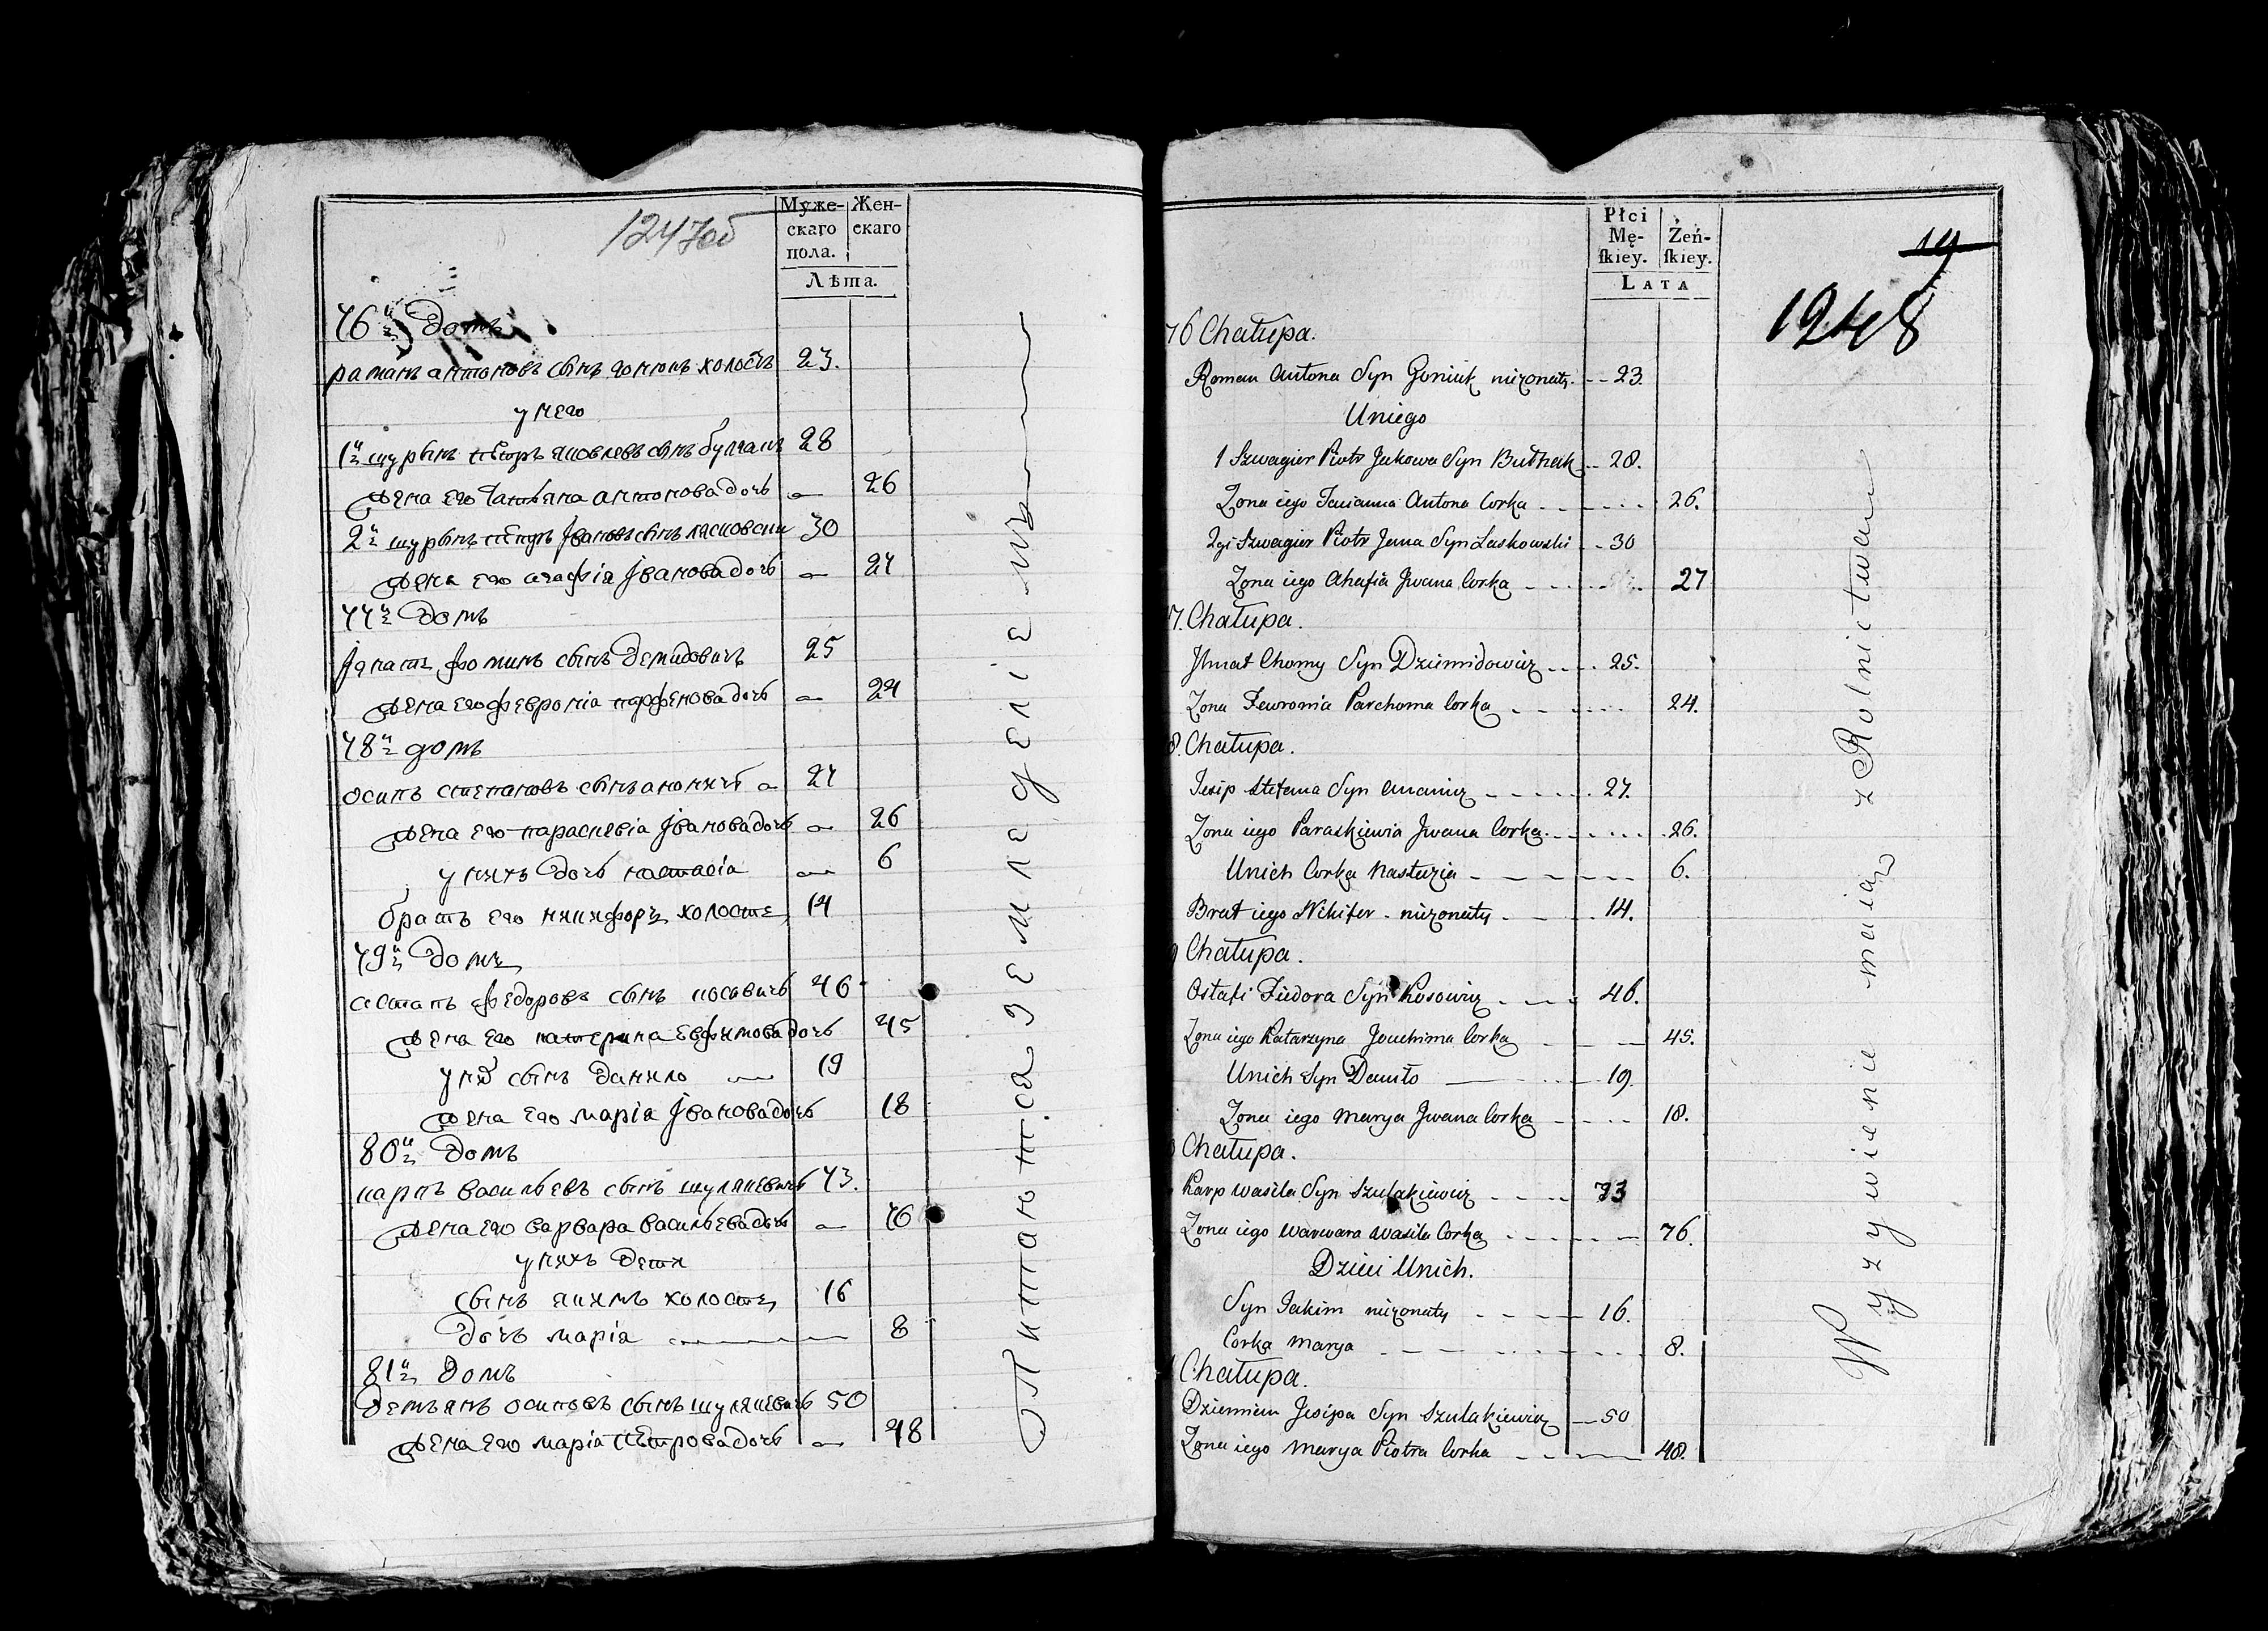 1247об
Муже-
скаго
пола.
Жен-
скаго
Лѣта.
76й Домъ
раманъ антоновъ сынъ гонюкъ холостъ 23.
у него
1й шуринъ петръ яковлевъ сынъ булгакъ 28
жена его татьяна антонова дочь 26
2й шуринъ петръ Ивановъ сынъ ласковски 30
жена его агафія Іванова дочь 27
77й Домъ
Ігнатъ фоминъ сынъ Демидовичъ 25
жена его февронія парфенова дочь 24
78й домъ
осипъ степановъ сынъ ананичъ 27
жена его параскевія Іванова дочь 26
у нихъ дочь настасія 6
братъ его никифоръ холостъ 14
79й Домъ
астапъ федоровъ сынъ косовичъ 46
жена его катерина евфимова дочь 45
у нихъ сынъ данило 19
жена его марія Іванова дочь 18
80й Домъ
карпъ васильевъ сынъ шулякевичъ 73.
жена его варвара васильева дочь 76
у нихъ дети
сынъ якимъ холостъ 16
дочь марія 8
81й Домъ
демьянъ осиповъ сынъ шулякевичъ 50
жена его марія петрова дочь 48
Питаются земледеліемъ
Płci
Mę-
ſkiey.
Żeń-
ſkiey.
LATA
19
1248
76 Chałupa.
Roman Antona Syn Goniuk nieżonaty. 23.
Uniego
1 Szwagier Piotr Jakowa Syn Bułhak 28.
Zona iego Tacianna Antona Corka 26.
2gi Szwagier Piotr Jana Syn Laskowski 30
Zona iego Ahafia Jwana Corka 27
7. Chałupa.
Jhnat Chomy Syn Dziemidowicz 25.
Zona Fewronia Parchoma Corka 24.
8. Chałupa.
Jesip Stefana Syn Ananicz 27.
Zona iego Paraskiewia Jwana Corka 26.
Unich Corka Nastazia 6.
Brat iego Nikifer nieżonaty 14.
9 Chałupa.
Ostafi Fiedora Syn Kosowicz 46.
Zona iego Katarzyna Jouchima Corka 45.
Unich Syn Daniło 19.
Zona iego Marya Jwana Corka 18.
Chałupa.
Karp Wasila Syn Szulakiewicz 73
Zona iego Warwara Wasila Corka 76.
Dzieci Unich.
Syn Jakim nieżonaty 16.
Corka Marya 8.
Chałupa.
Dziemian Jesipa Syn Szulakiewicz 50
Zona iego Marya Piotra Corka 48.
Wyzywienie maią z Rolnictwa